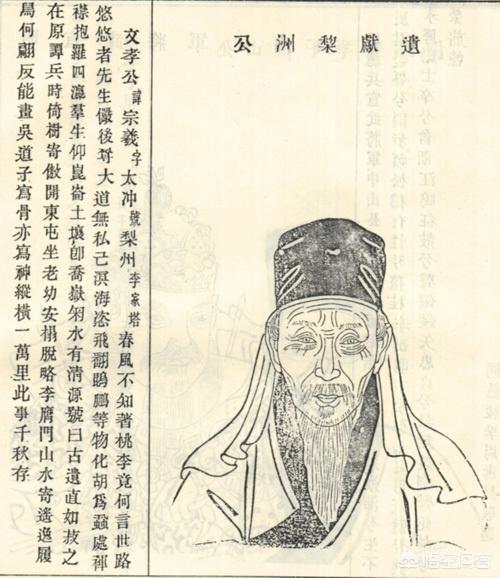 遺獻梨洲公
文孝公諱宗羲字太冲號梨州李家塔春風不知著桃李竟何言世路
悠悠者先生儼後尊大道無私己溟海恣飛翻鷃鵬等物化胡爲蝨處褌
襟抱羅四瀛羣生仰崑崙土壤卽喬嶽匊水有清源號曰古遺直如菽之
在原譚兵時倚樹寄傲開東屯坐老幼安榻脫略李膺門山水寄遙逸履
舄何翩反能畫吳道子寫骨亦寫神縱橫一萬里此事千秋存
悟空问答